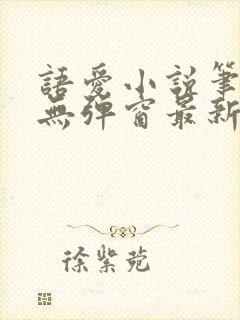 語愛小說筆
無彈窗最新
徐紫菀